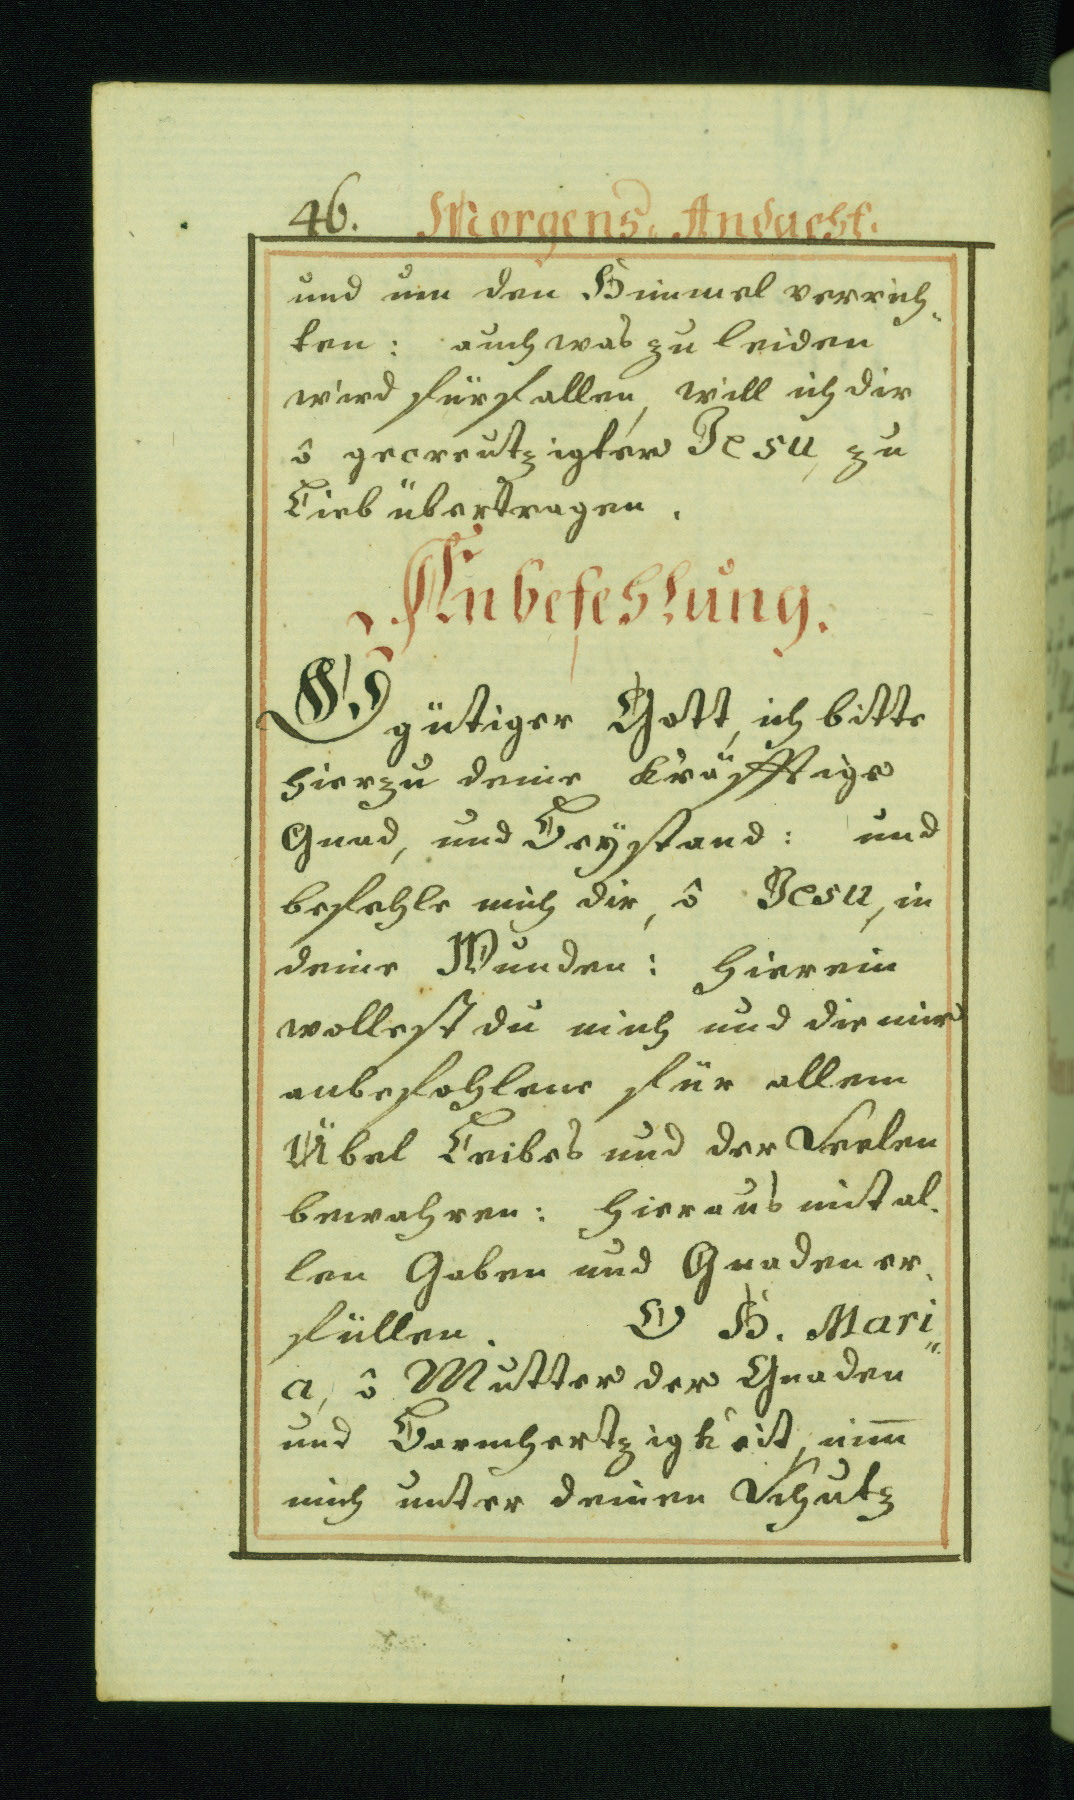 46. Morgens. Andacht.
und um den Himmel verrich„
ten: auch was zu leiden
wird fürfallen, will ich dir
ô gecreutzigter Jesu, zu
Lieb übertragen.
Anbefehlung.
O gütiger Gott, ich bitte
hierzu deine kräfftige
Gnad, und Beÿstand: und
befehle mich dir, ô Jesu, in
deine Wunden: hierein
wollest du mich und die mir
anbefohlene für allem
Übel Leibes und der Seelen
bewahren: hieraus mit al„
len Gaben und Gnaden er„
füllen. O H. Mari„
a, ô Mutter der Gnaden
und Barmhertzigkeit, nim̅
mich unter deinen Schutz